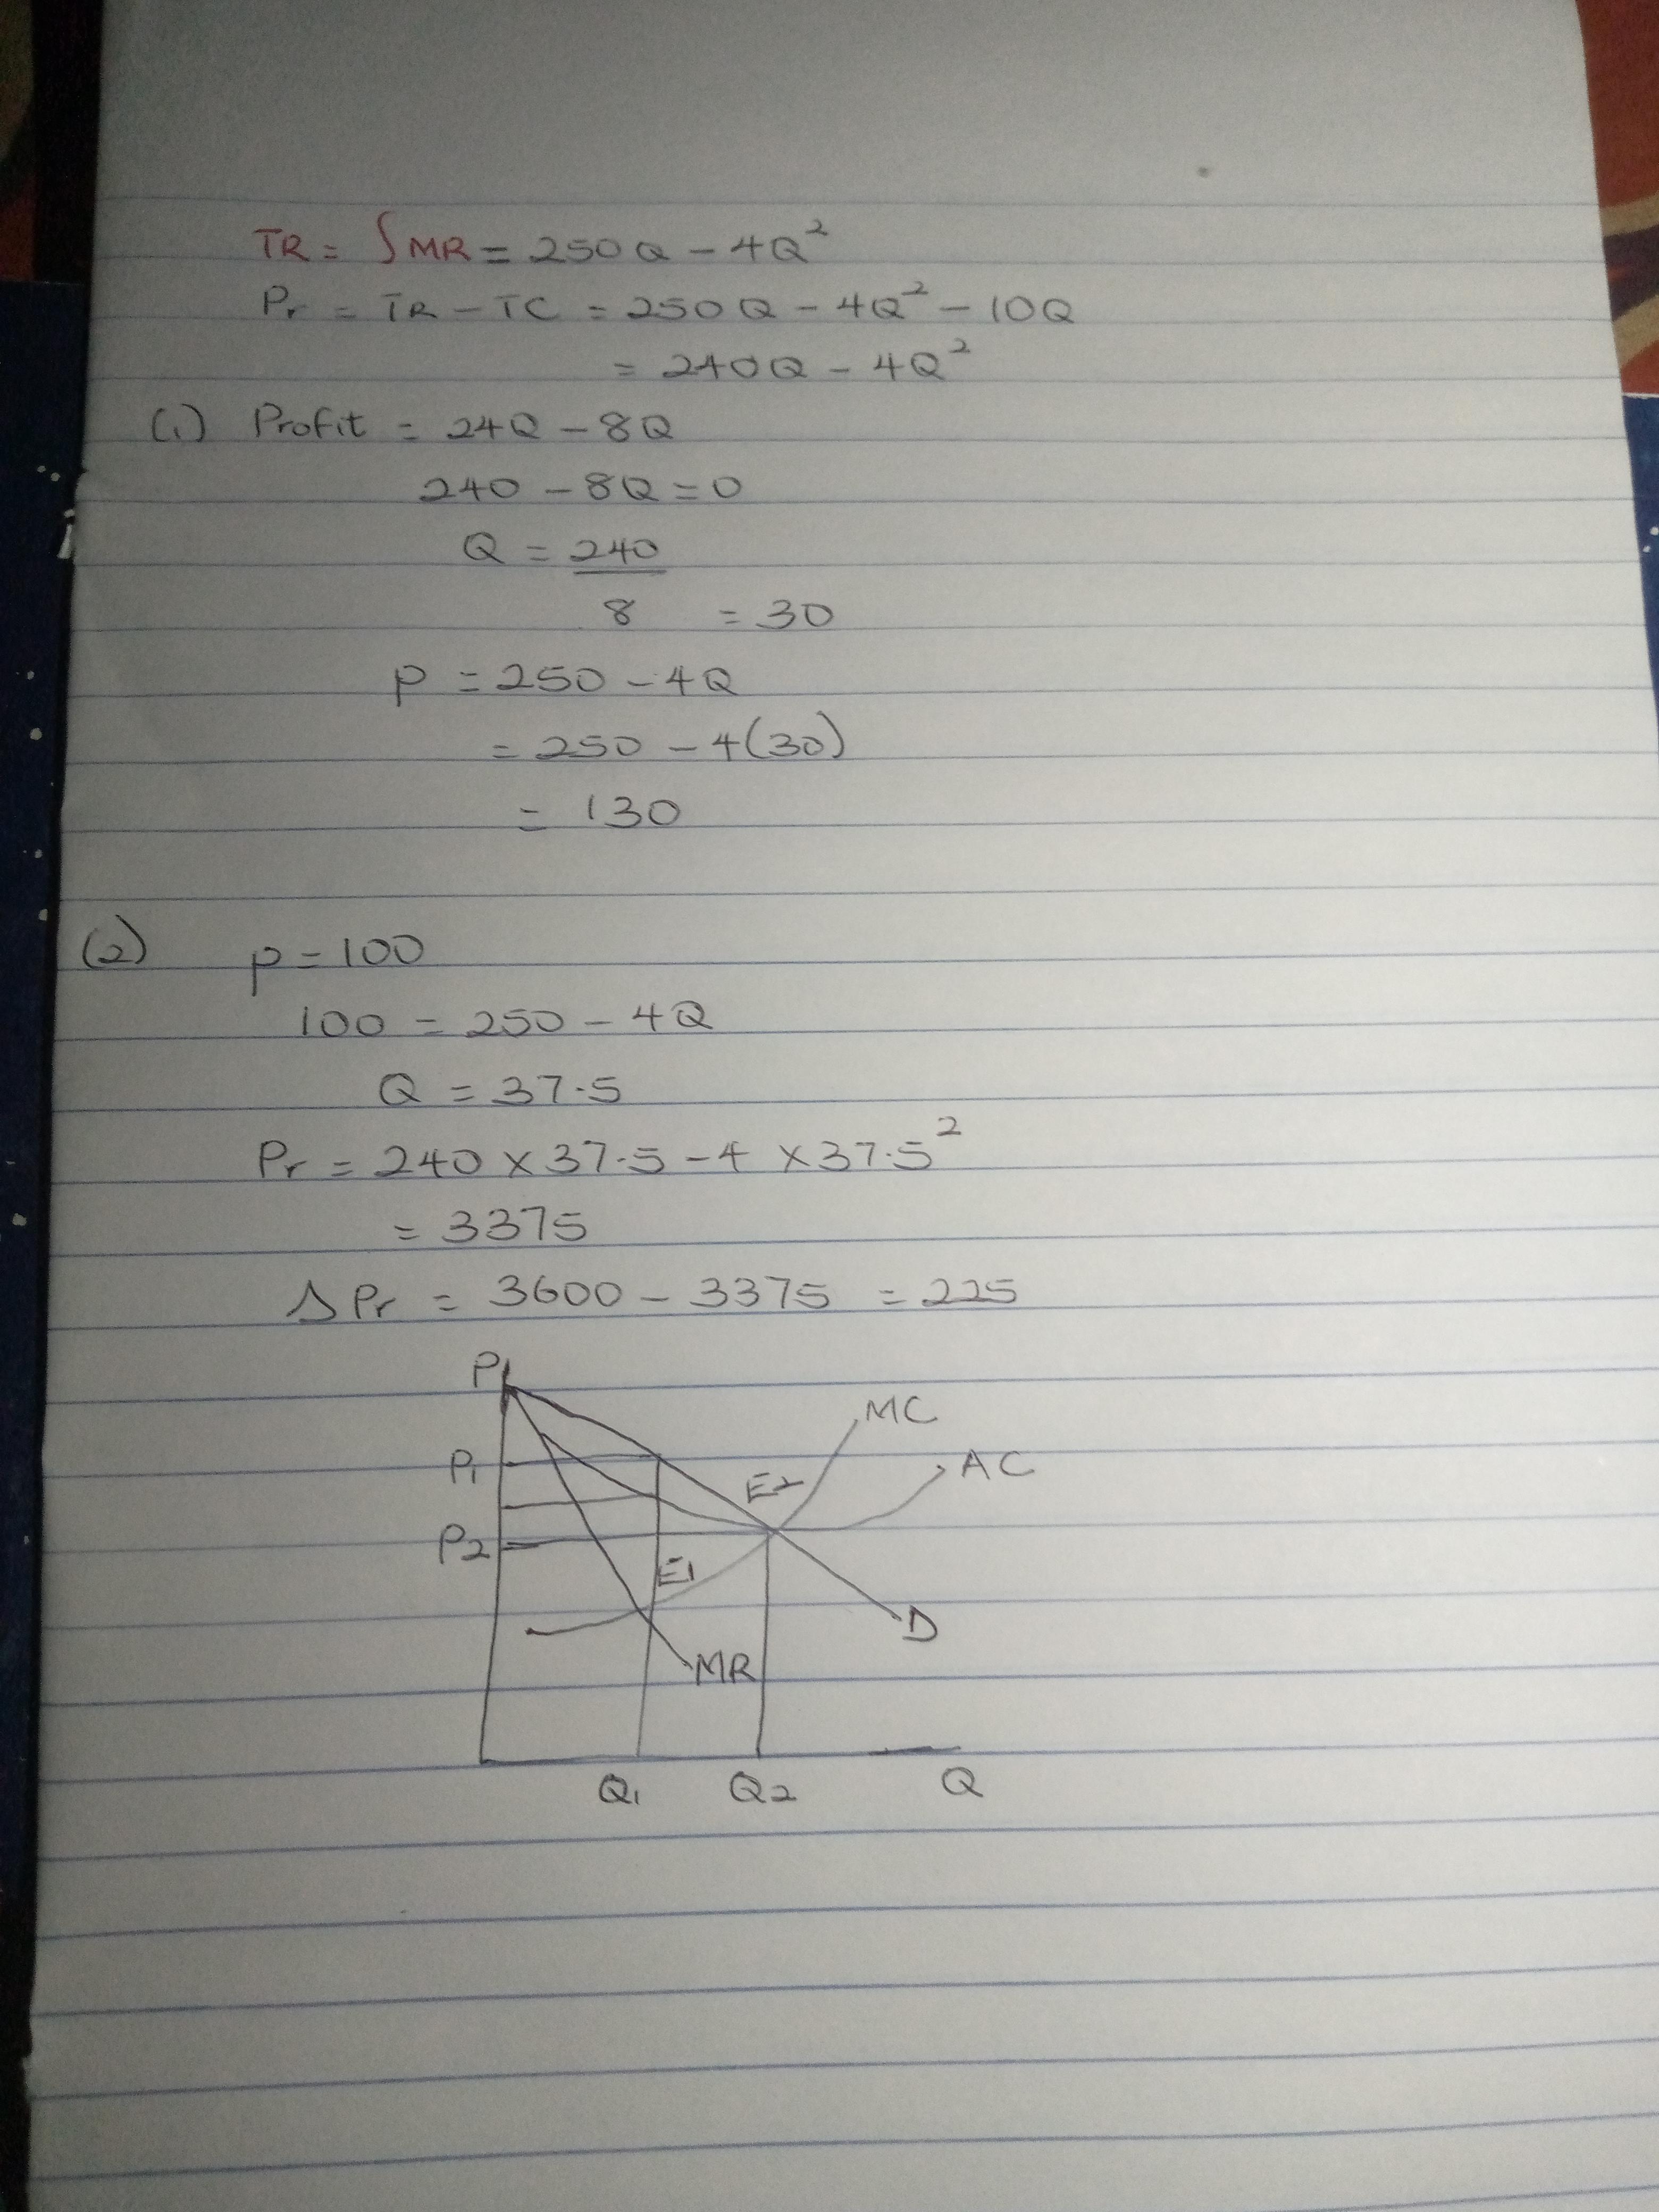 TR = ∫MR = 250Q - 4Q²
Pr = TR - TC = 250Q - 4Q² - 10Q
= 240Q - 4Q²
(1) Profit = 24Q - 8Q
240 - 8Q = 0
Q = 240
8 = 30
P = 250 - 4Q
= 250 - 4(30)
= 130
(2) P = 100
100 = 250 - 4Q
Q = 37.5
Pr = 240 × 37.5 - 4 × 37.5²
= 3375
Δ Pr = 3600 - 3375 = 225
P
MC
P1
AC
E2
P2
E1
D
MR
Q1 Q2 Q